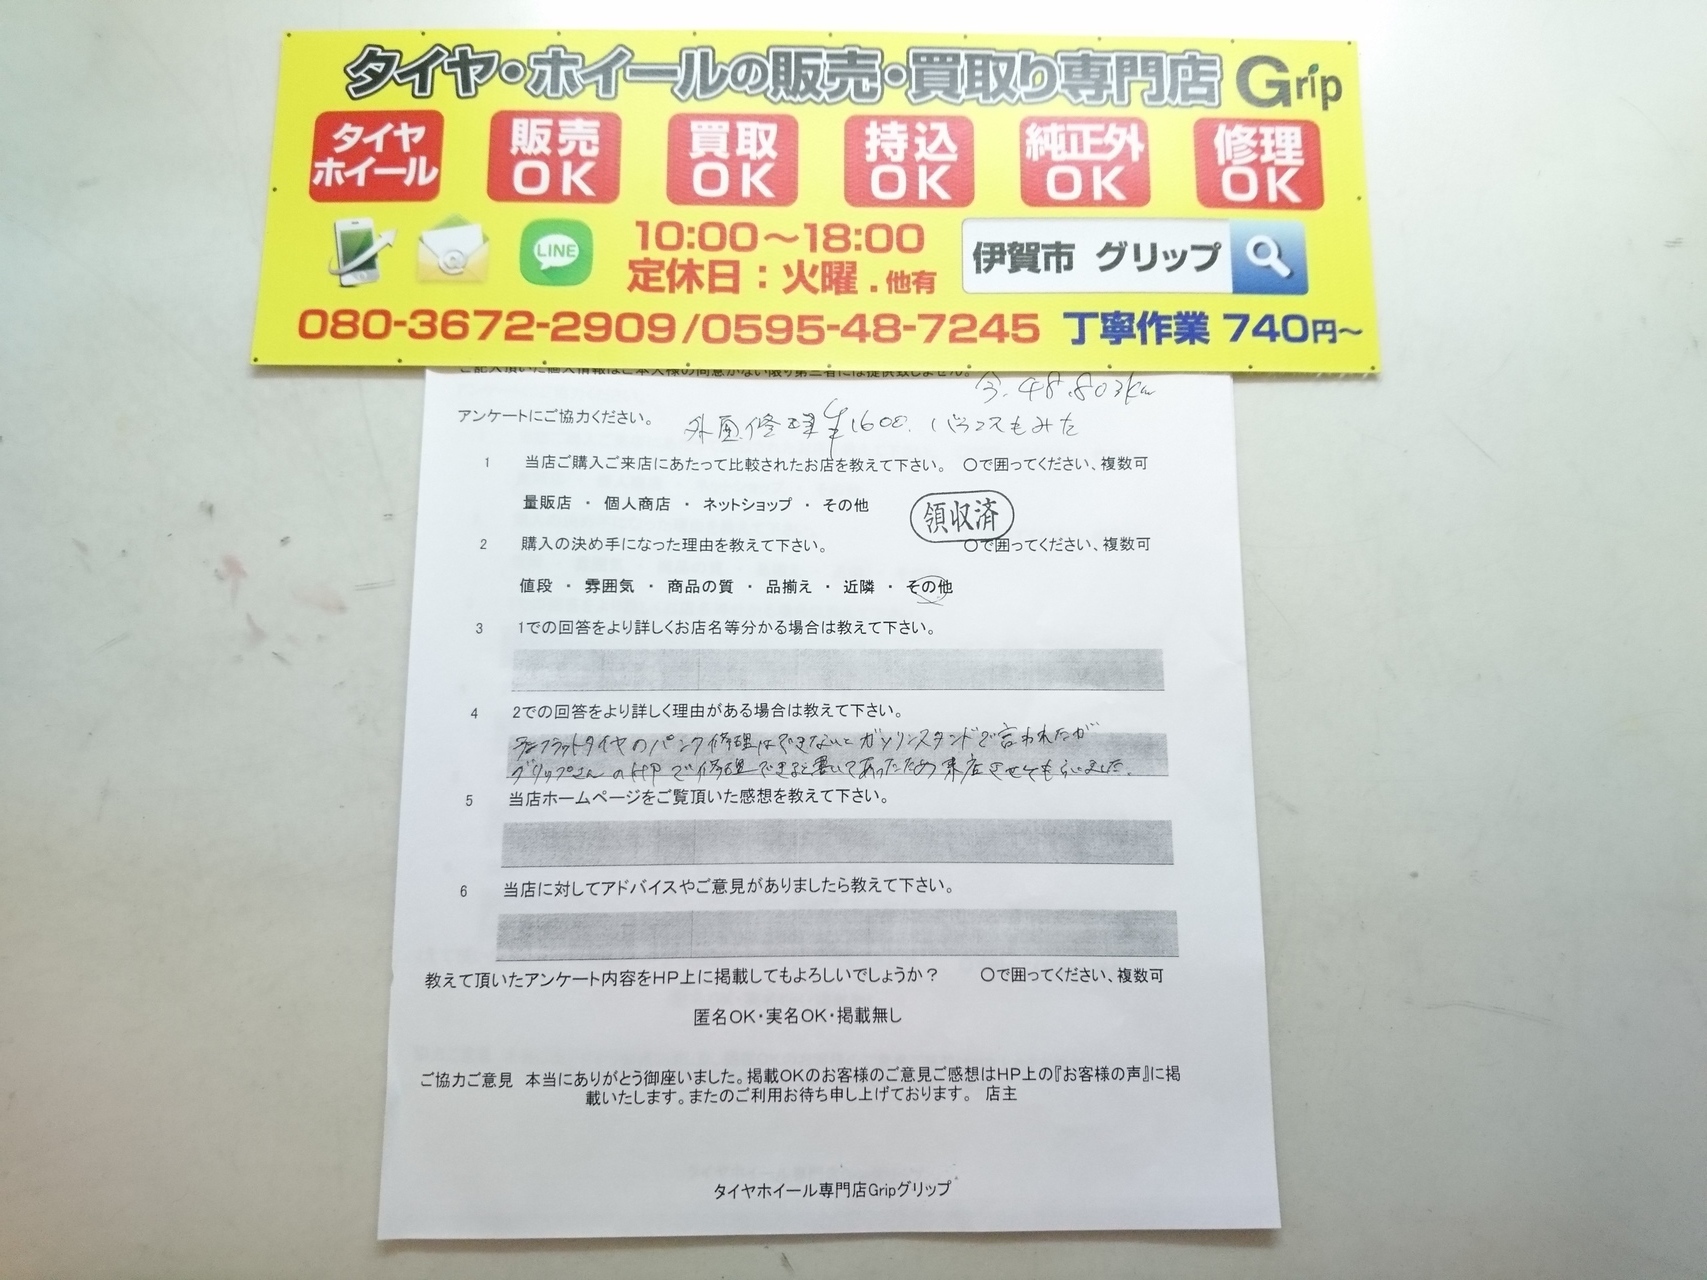 タイヤ・ホイールの販売・買取り専門店 Grip
タイヤ
ホイール
販売
OK
買取
OK
持込
OK
純正外
OK
修理
OK
LINE
10:00〜18:00
定休日：火曜.他有
伊賀市 グリップ
080-3672-2909/0595-48-7245 丁寧作業 740円〜
ご記入頂いた個人情報はご本人様の同意がない限り第三者には提供致しません。
48.803km
アンケートにご協力ください。
外面修理¥1600. バランスもみた
1 当店ご購入ご来店にあたって比較されたお店を教えて下さい。 〇で囲ってください、複数可
量販店 ・ 個人商店 ・ ネットショップ ・ その他
領収済
2 購入の決め手になった理由を教えて下さい。 〇で囲ってください、複数可
値段 ・ 雰囲気 ・ 商品の質 ・ 品揃え ・ 近隣 ・ その他
3 1での回答をより詳しくお店名等分かる場合は教えて下さい。
4 2での回答をより詳しく理由がある場合は教えて下さい。
ランフラットタイヤのパンク修理はできないとガソリンスタンドで言われたが
グリップさんのHPで修理できると書いてあったため来店させてもらいました.
5 当店ホームページをご覧頂いた感想を教えて下さい。
6 当店に対してアドバイスやご意見がありましたら教えて下さい。
教えて頂いたアンケート内容をHP上に掲載してもよろしいでしょうか？ 〇で囲ってください、複数可
匿名OK・実名OK・掲載無し
ご協力ご意見 本当にありがとう御座いました。掲載OKのお客様のご意見ご感想はHP上の『お客様の声』に掲
載いたします。またのご利用お待ち申し上げております。 店主
タイヤホイール専門店Gripグリップ